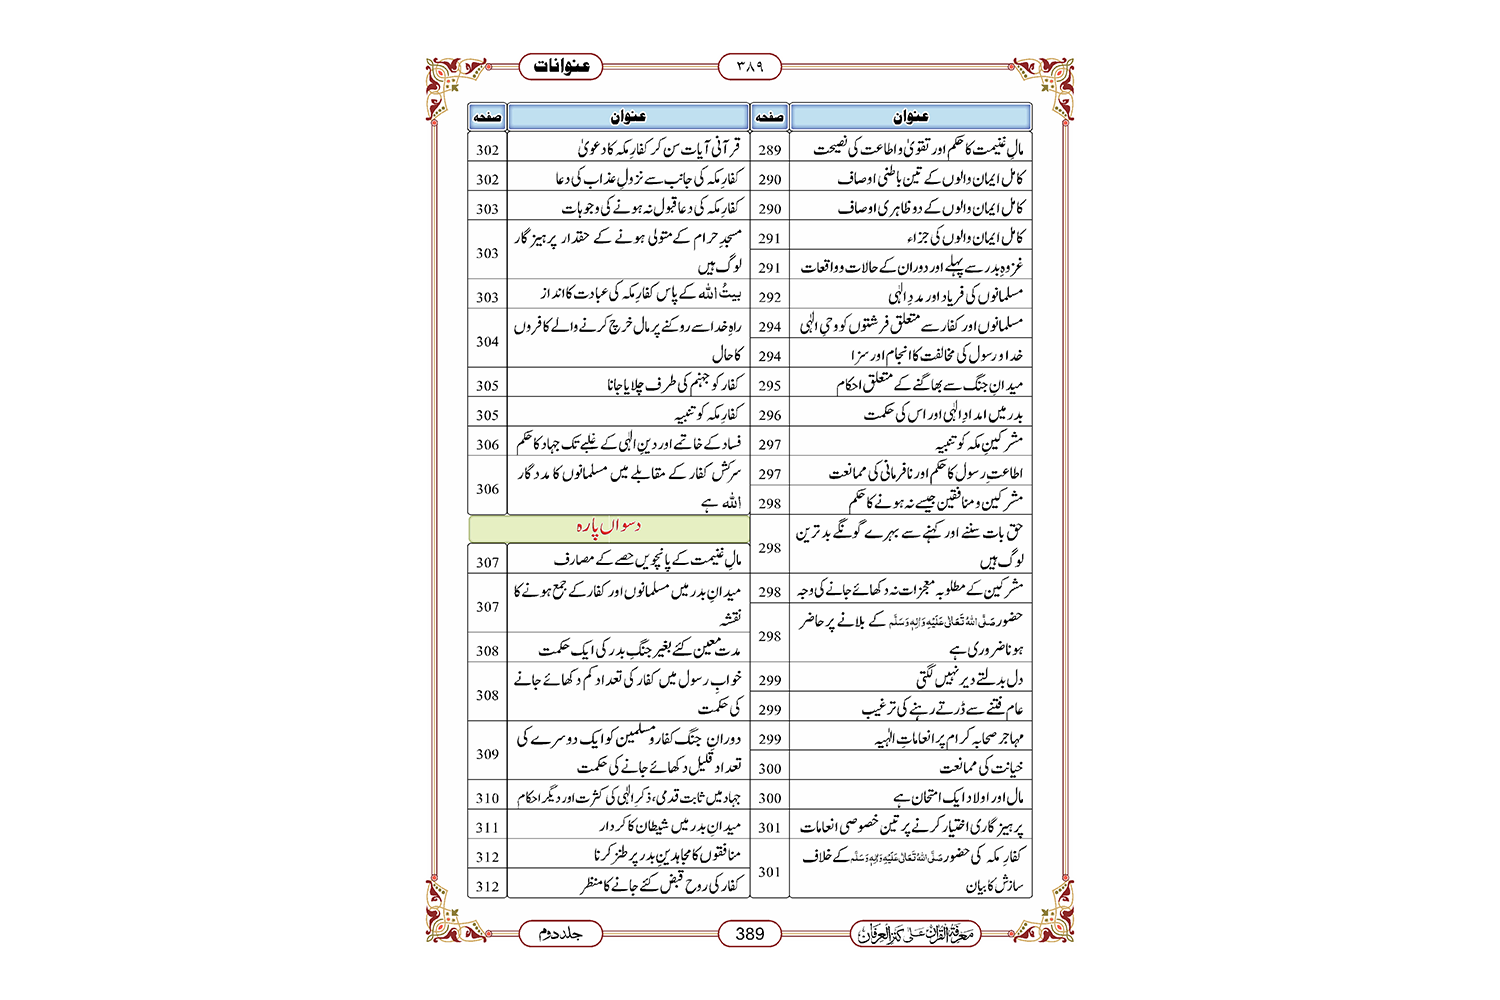 عنوانات
۳۸۹
عنوان صفحہ
مالِ غنیمت کا حکم اور تقویٰ و اطاعت کی نصیحت 289
کامل ایمان والوں کے تین باطنی اوصاف 290
کامل ایمان والوں کے دو ظاہری اوصاف 290
کامل ایمان والوں کی جزاء 291
غزوۂ بدر سے پہلے اور دوران کے حالات و واقعات 291
مسلمانوں کی فریاد اور مددِ الٰہی 292
مسلمانوں اور کفار سے متعلق فرشتوں کو وحیِ الٰہی 294
خدا و رسول کی مخالفت کا انجام اور سزا 294
میدانِ جنگ سے بھاگنے کے متعلق احکام 295
بدر میں امدادِ الٰہی اور اس کی حکمت 296
مشرکینِ مکہ کو تنبیہ 297
اطاعتِ رسول کا حکم اور نافرمانی کی ممانعت 297
مشرکین و منافقین جیسے نہ ہونے کا حکم 298
حق بات سننے اور کہنے سے بہرے گونگے بدترین
لوگ ہیں 298
مشرکین کے مطلوبہ معجزات نہ دکھائے جانے کی وجہ 298
حضور صَلَّی اللہُ تَعَالٰی عَلَیْہِ وَاٰلِہٖ وَسَلَّم کے بلانے پر حاضر
ہونا ضروری ہے 298
دل بدلتے دیر نہیں لگتی 299
عام فتنے سے ڈرتے رہنے کی ترغیب 299
مہاجر صحابہ کرام پر انعاماتِ الٰہیہ 299
خیانت کی ممانعت 300
مال اور اولاد ایک امتحان ہے 300
پرہیزگاری اختیار کرنے پر تین خصوصی انعامات 301
کفارِ مکہ کی حضور صَلَّی اللہُ تَعَالٰی عَلَیْہِ وَاٰلِہٖ وَسَلَّم کے خلاف
سازش کا بیان 301
عنوان صفحہ
قرآنی آیات سن کر کفارِ مکہ کا دعویٰ 302
کفارِ مکہ کی جانب سے نزولِ عذاب کی دعا 302
کفارِ مکہ کی دعا قبول نہ ہونے کی وجوہات 303
مسجدِ حرام کے متولی ہونے کے حقدار پرہیزگار
لوگ ہیں 303
بیتُ اللہ کے پاس کفارِ مکہ کی عبادت کا انداز 303
راہِ خدا سے روکنے پر مال خرچ کرنے والے کافروں
کا حال 304
کفار کو جہنم کی طرف چلایا جانا 305
کفارِ مکہ کو تنبیہ 305
فساد کے خاتمے اور دینِ الٰہی کے غلبے تک جہاد کا حکم 306
سرکش کفار کے مقابلے میں مسلمانوں کا مددگار
اللہ ہے 306
دسواں پارہ
مالِ غنیمت کے پانچویں حصے کے مصارف 307
میدانِ بدر میں مسلمانوں اور کفار کے جمع ہونے کا
نقشہ 307
مدت معین کئے بغیر جنگِ بدر کی ایک حکمت 308
خوابِ رسول میں کفار کی تعداد کم دکھائے جانے
کی حکمت 308
دورانِ جنگ کفار و مسلمین کو ایک دوسرے کی
تعداد قلیل دکھائے جانے کی حکمت 309
جہاد میں ثابت قدمی، ذکرِ الٰہی کی کثرت اور دیگر احکام 310
میدانِ بدر میں شیطان کا کردار 311
منافقوں کا مجاہدینِ بدر پر طنز کرنا 312
کفار کی روح قبض کئے جانے کا منظر 312
معرفۃ القرآن علیٰ کنز العرفان
389
جلد دوم